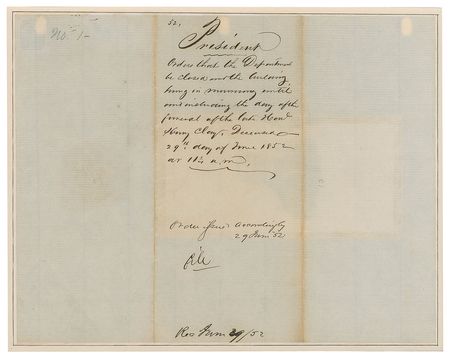 No. 1-
52.
President
Orders that the Department
be closed and the building
hung in mourning until
and including the day of the
funeral of the late Honl
Henry Clay, Deceased
29th day of June 1852
at 11¼ a.m.
Order issd accordingly
29 June 52
File
Rec June 29/52